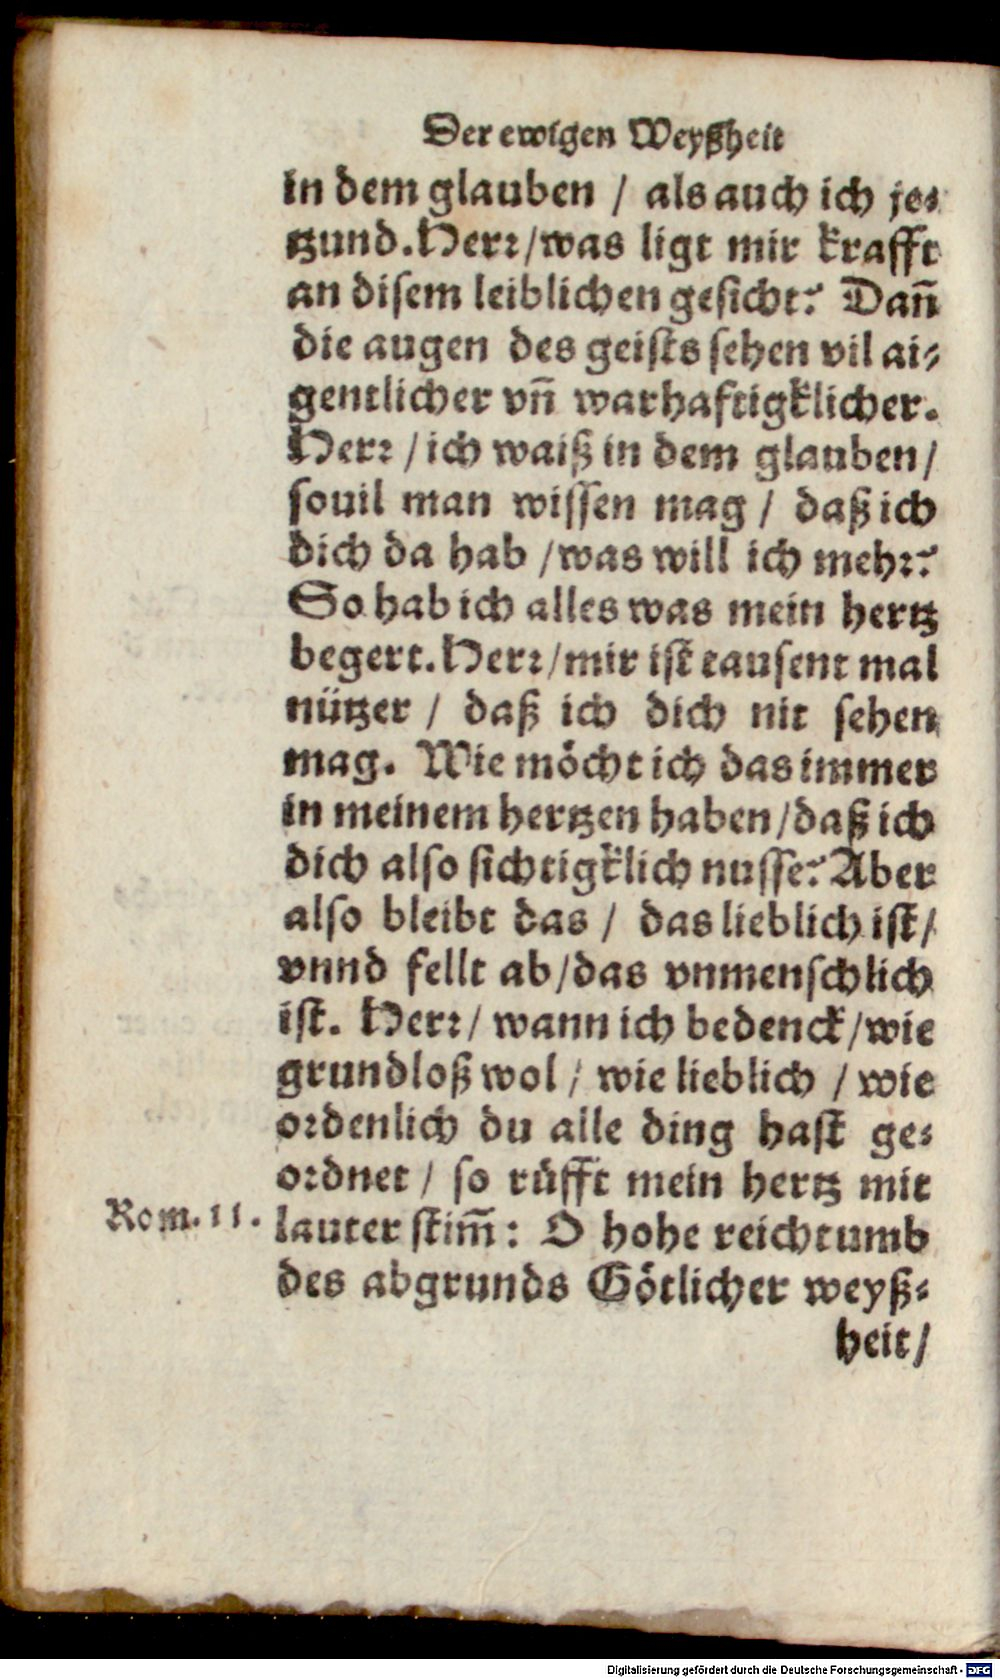 Der ewigen Weyßheit
in dem glauben / als auch ich je⸗
tzund. Herꝛ / was ligt mir krafft
an disem leiblichen gesicht? Dañ
die augen des geists sehen vil ai⸗
gentlicher vñ warhaftigklicher.
Herꝛ / ich waiß in dem glauben /
souil man wissen mag / daß ich
dich da hab / was will ich mehꝛ?
So hab ich alles was mein hertz
begert. Herꝛ / mir ist tausent mal
nützer / daß ich dich nit sehen
mag. Wie möcht ich das immer
in meinem hertzen haben / daß ich
dich also sichtigklich nusse? Aber
also bleibt das / das lieblich ist /
vnnd fellt ab / das vnmenschlich
ist. Herꝛ / wann ich bedenck / wie
grundloß wol / wie lieblich / wie
oꝛdenlich du alle ding hast ge⸗
oꝛdnet / so rüfft mein hertz mit
Rom. 11. lauter stim̃: O hohe reichtumb
des abgrunds Götlicher weyß⸗
heit /
Digitalisierung gefördert durch die Deutsche Forschungsgemeinschaft - DFG